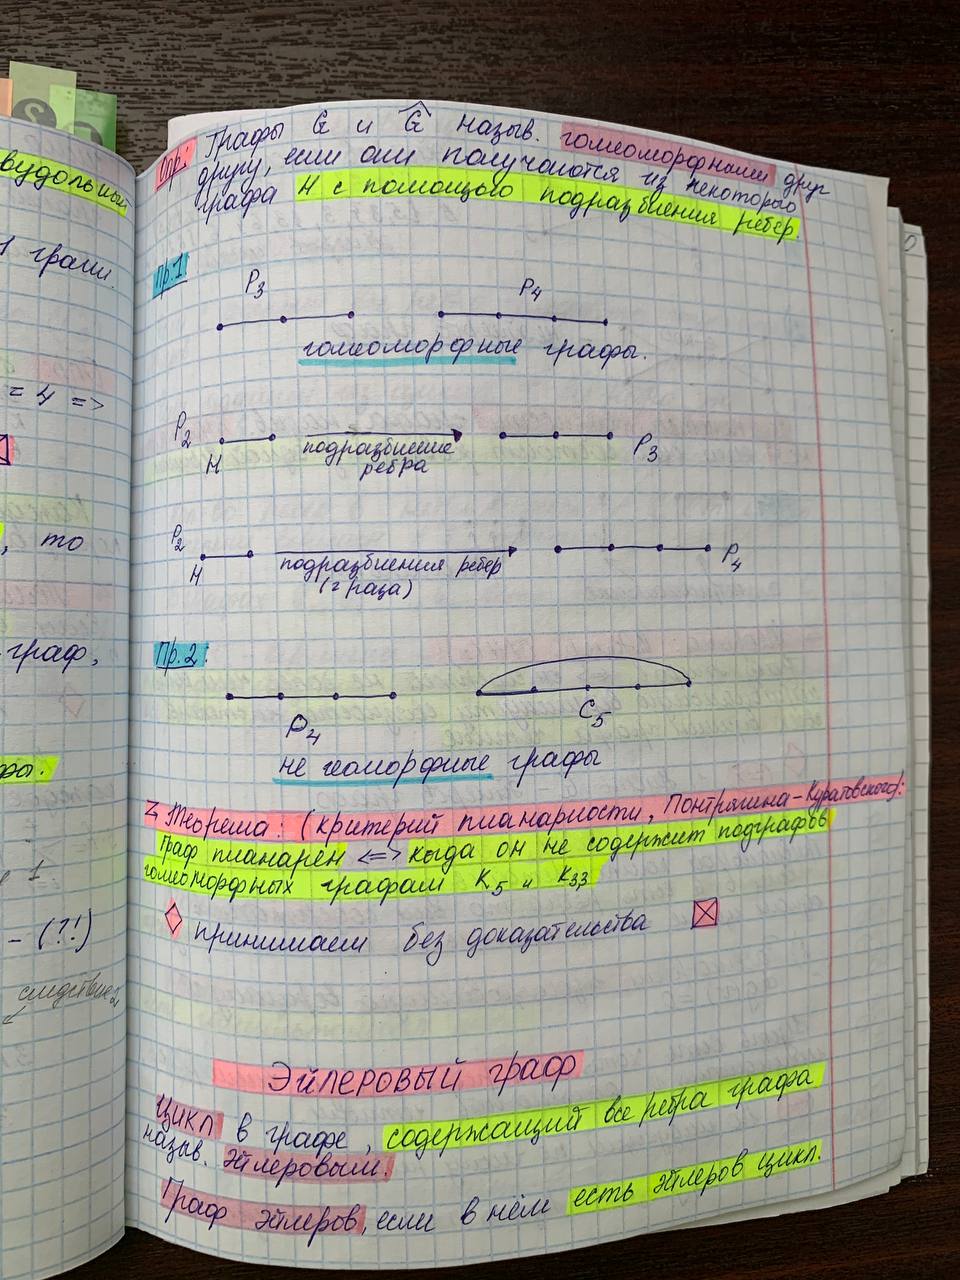 вудольный
1 грани.
= 4 =>
, то
граф,
фы.
1.
- (?!)
следствие
Опр: Графы G и Ĝ назыв. гомеоморфными друг
другу, если они получаются из некоторого
графа H с помощью подразбиения ребер.
Пр.1
P3 P4
гомеоморфные графы.
P2 H подразбиение P3
ребра
P2 H подразбиения ребер P4
(2 раза)
Пр.2:
P4 C5
не геоморфные графы
Теорема: (критерий планарности, Понтрягина-Куратовского):
Граф планарен <=> когда он не содержит подграфов
гомеоморфных графам K5 и K3,3
принимаем без доказательства
Эйлеровый граф
Цикл в графе, содержащий все ребра графа
назыв. эйлеровым.
Граф эйлеров, если в нём есть эйлеров цикл.